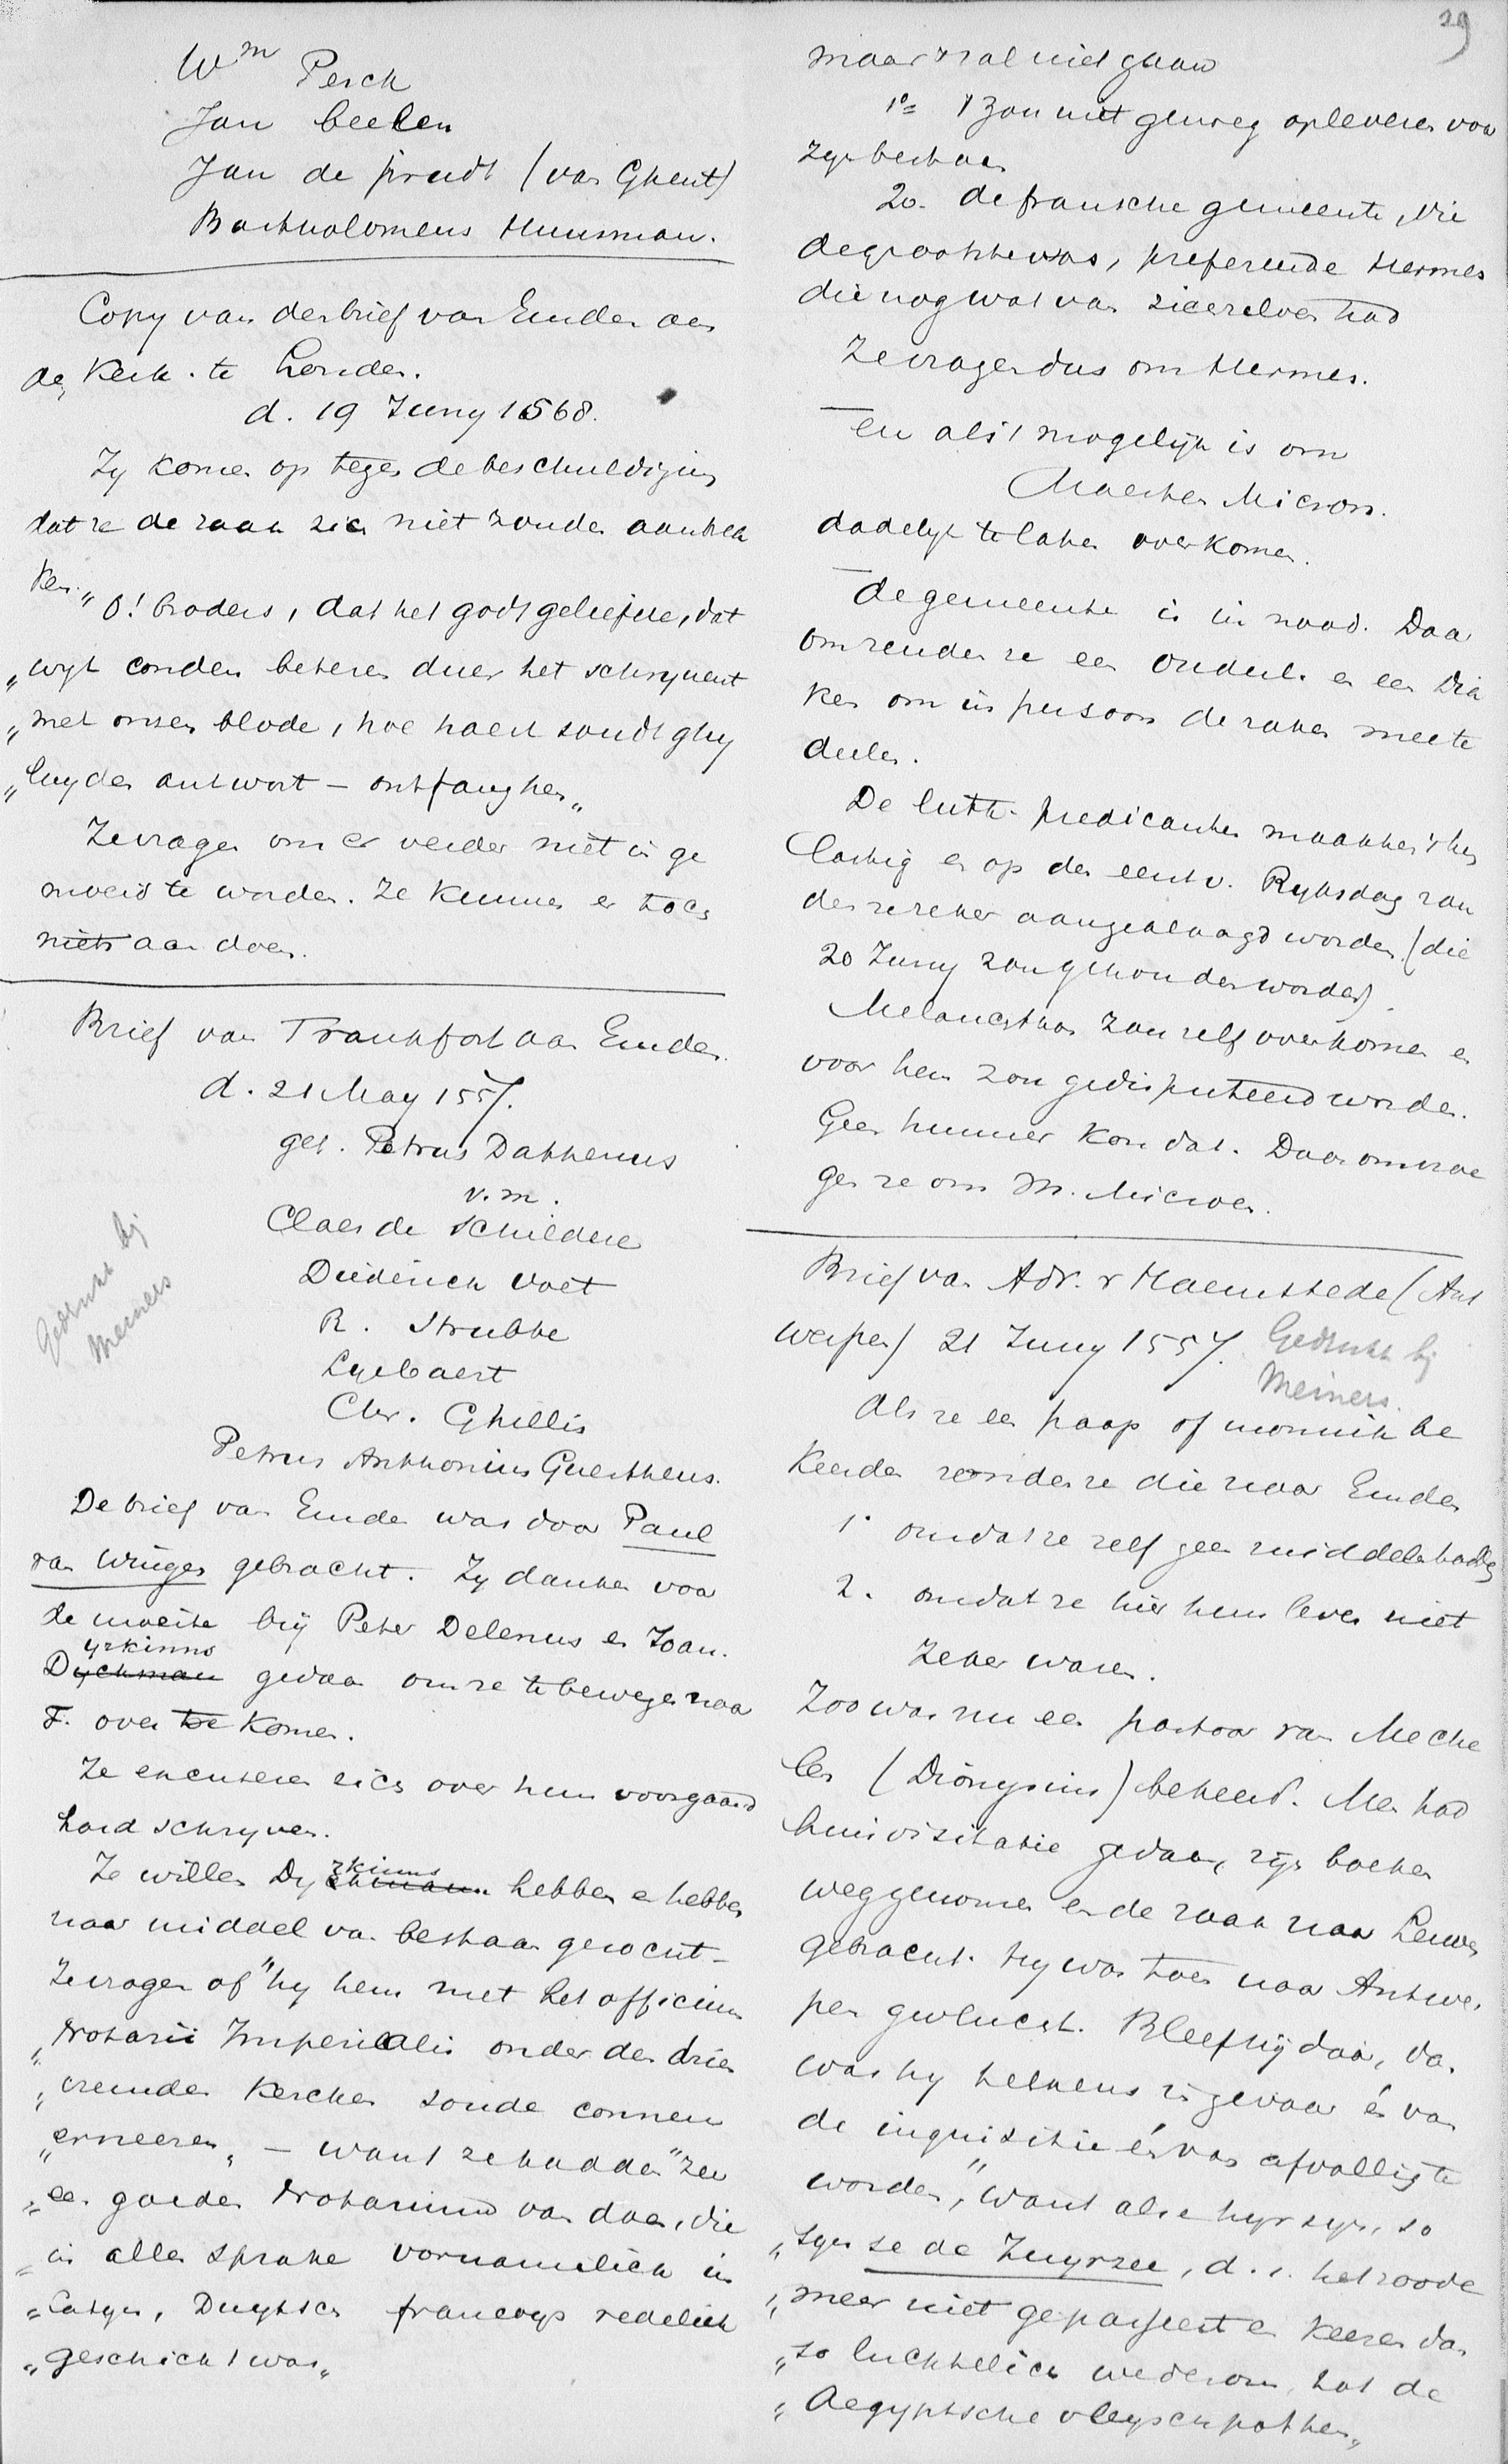 29
Wm Perck
Jan beelen
Jan de (van Ghent)
Bartholomeus Huusman.
Copy van den brief van Emden aan
de Kerk te Londen.
d. 19 Juny 1568.
Zy komen op tegen de beschuldiging
dat ze de zaak zich niet zouden aantrek
ken. „O! broders, dat het godt geliefde, dat
„wyt conden beteren duer het schryuent
„met onsen blode, hoe haest soudt ghy
„luyden antwort – ontfanghen„
Ze vragen om er verder niet in ge
moeid te worden. Ze kunnen er toch
niets aan doen.
Brief van Frankfort aan Emden.
d. 21 May 1557.
get. Petrus Dathenus
v. m.
Claes de Schildere
Diederick Voet
R. Strubbe
Lyebaert
Chr. Ghillis
Petrus Anthonius Guertheus.
Gedrukt bij
Meiners
De brief van Emden was door Paul
van Wingen gebracht. Zy danken voor
de moeite bij Peter Delenus en Joan.
Dyrkinus gedaan om ze te bewegen naar
F. over te komen.
Ze excuseren zich over hun voorgaand
hard schryven.
Ze willen Dyrkinus hebben en hebben
naar middel van bestaan gezocht –
Ze vragen of "hy hem met het officium
„Notarii Imperialis onder den drien
„vremden Kercken soude connen
„erneeren„ – want ze hadden "zeer
„een goeden Notarium van doen, die
„in allen sprake vornamelick in
„Latyn, Duytsch francoys redelick
„geschickt was„
maar 't zal niet gaan
1o 't Zou niet genoeg opleveren voor
zyn bestaan
2o. de fransche gemeente, die
de grootste was, prefereerde Hermes
die nog wat van zichzelven had
Ze vragen dus om Hermes.
– en als 't mogelijk is om
Maerten Micron.
dadelyk te laten overkomen.
– de gemeente is in nood. Daar
om zenden ze een ouderl. en een Dia
ken om in persoon de zaken mee te
deelen.
De luth. predicanten maakten 't hen
lastig en op den eerstv. Ryksdag zou
den ze zeker aangeklaagd worden. (die
20 Juny zou gehouden worden).
Melanchton zou zelf overkomen en
voor hem zou gedisputeerd worden.
Geen hunner kon dat. Daarom vrae
gen ze om M. Micron.
Brief van Adr. v Haemstede (Ant
werpen) 21 Juny 1557. Gedrukt bij
Meiners.
Als ze een paap of monnik be
keerden zonden ze die naar Emden
1. omdat ze zelf geen middelen hadden
2. omdat ze hier hun leven niet
zeker waren.
Zoo was nu een pastoor van Meche
len (Dionysius) bekeerd. Men had
huisvisitatie gedaan, zijn boeken
weggenomen en de zaak naar Leuven
gebracht. Hy was toen naar Antwer
pen gevlucht. Bleef hij daar, dan
was hy telkens in gevaar én van
de inquisitie én van afvallig te
worden, "want al en hyr syn, so
„syn se de Zuyrzee, d. i. het roode
„meer niet gepasseert en keeren dan
„so luchtelick wederom tot de
„Aegyptsche vleyschpotten„